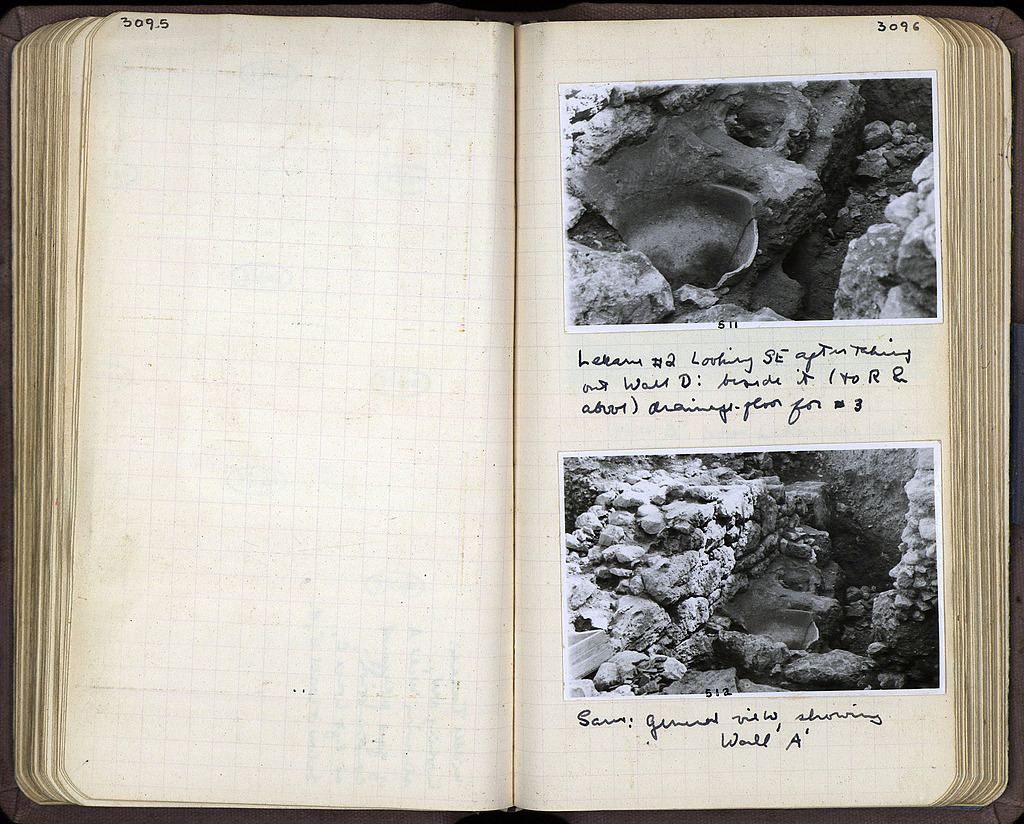 3095
3096
511
Lekane #2 Looking SE after taking
out Wall D: beside it (to R &
above) drainage-floor for #3
512
Same: general view, showing
Wall 'A'